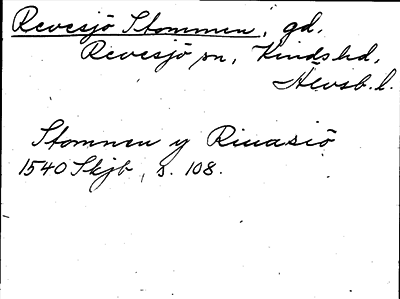 Revesjö Stommen, gd.
Revesjö sn, Kinds hd,
Älvsb. l.
Stommen y Riuasiö
1540 Skjb, s. 108.